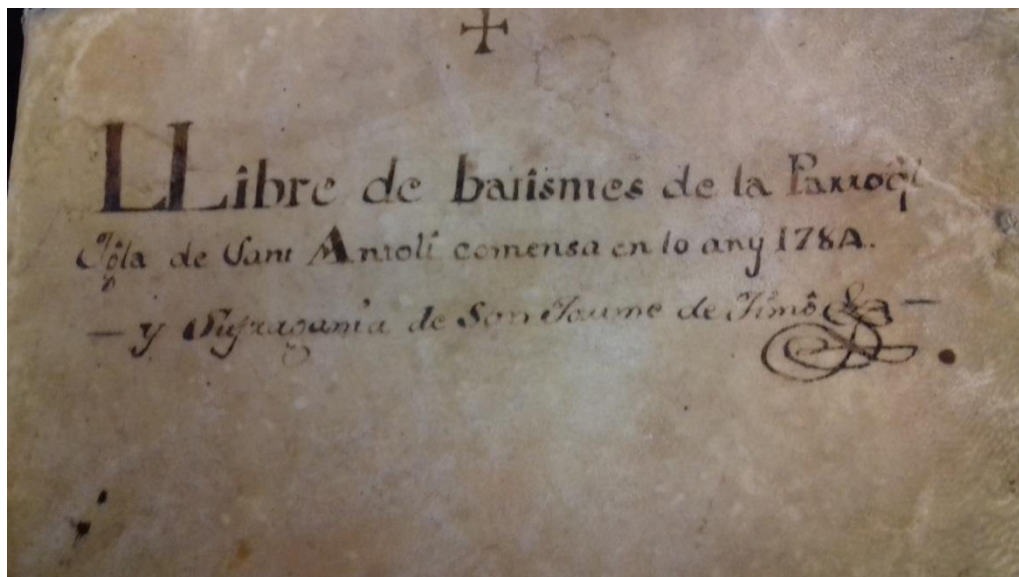 LLibre de batismes de la Parroq̃
Iglª de Sant Antolí comensa en lo any 1784.
— y Sufragania de San Jaume de Timó —